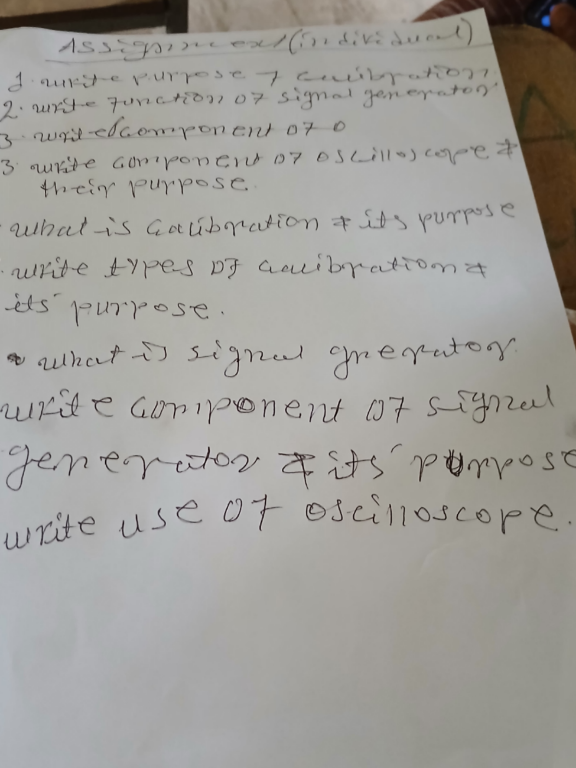 Assignment (individual)
1. write purpose of calibration.
2. write function of signal generator
3 write component of o
3 write component of oscilloscope &
their purpose.
what is calibration & its purpose
write types of calibration &
its purpose.
what is signal gnerator.
write component of signal
generator & its purpose
write use of oscilloscope.